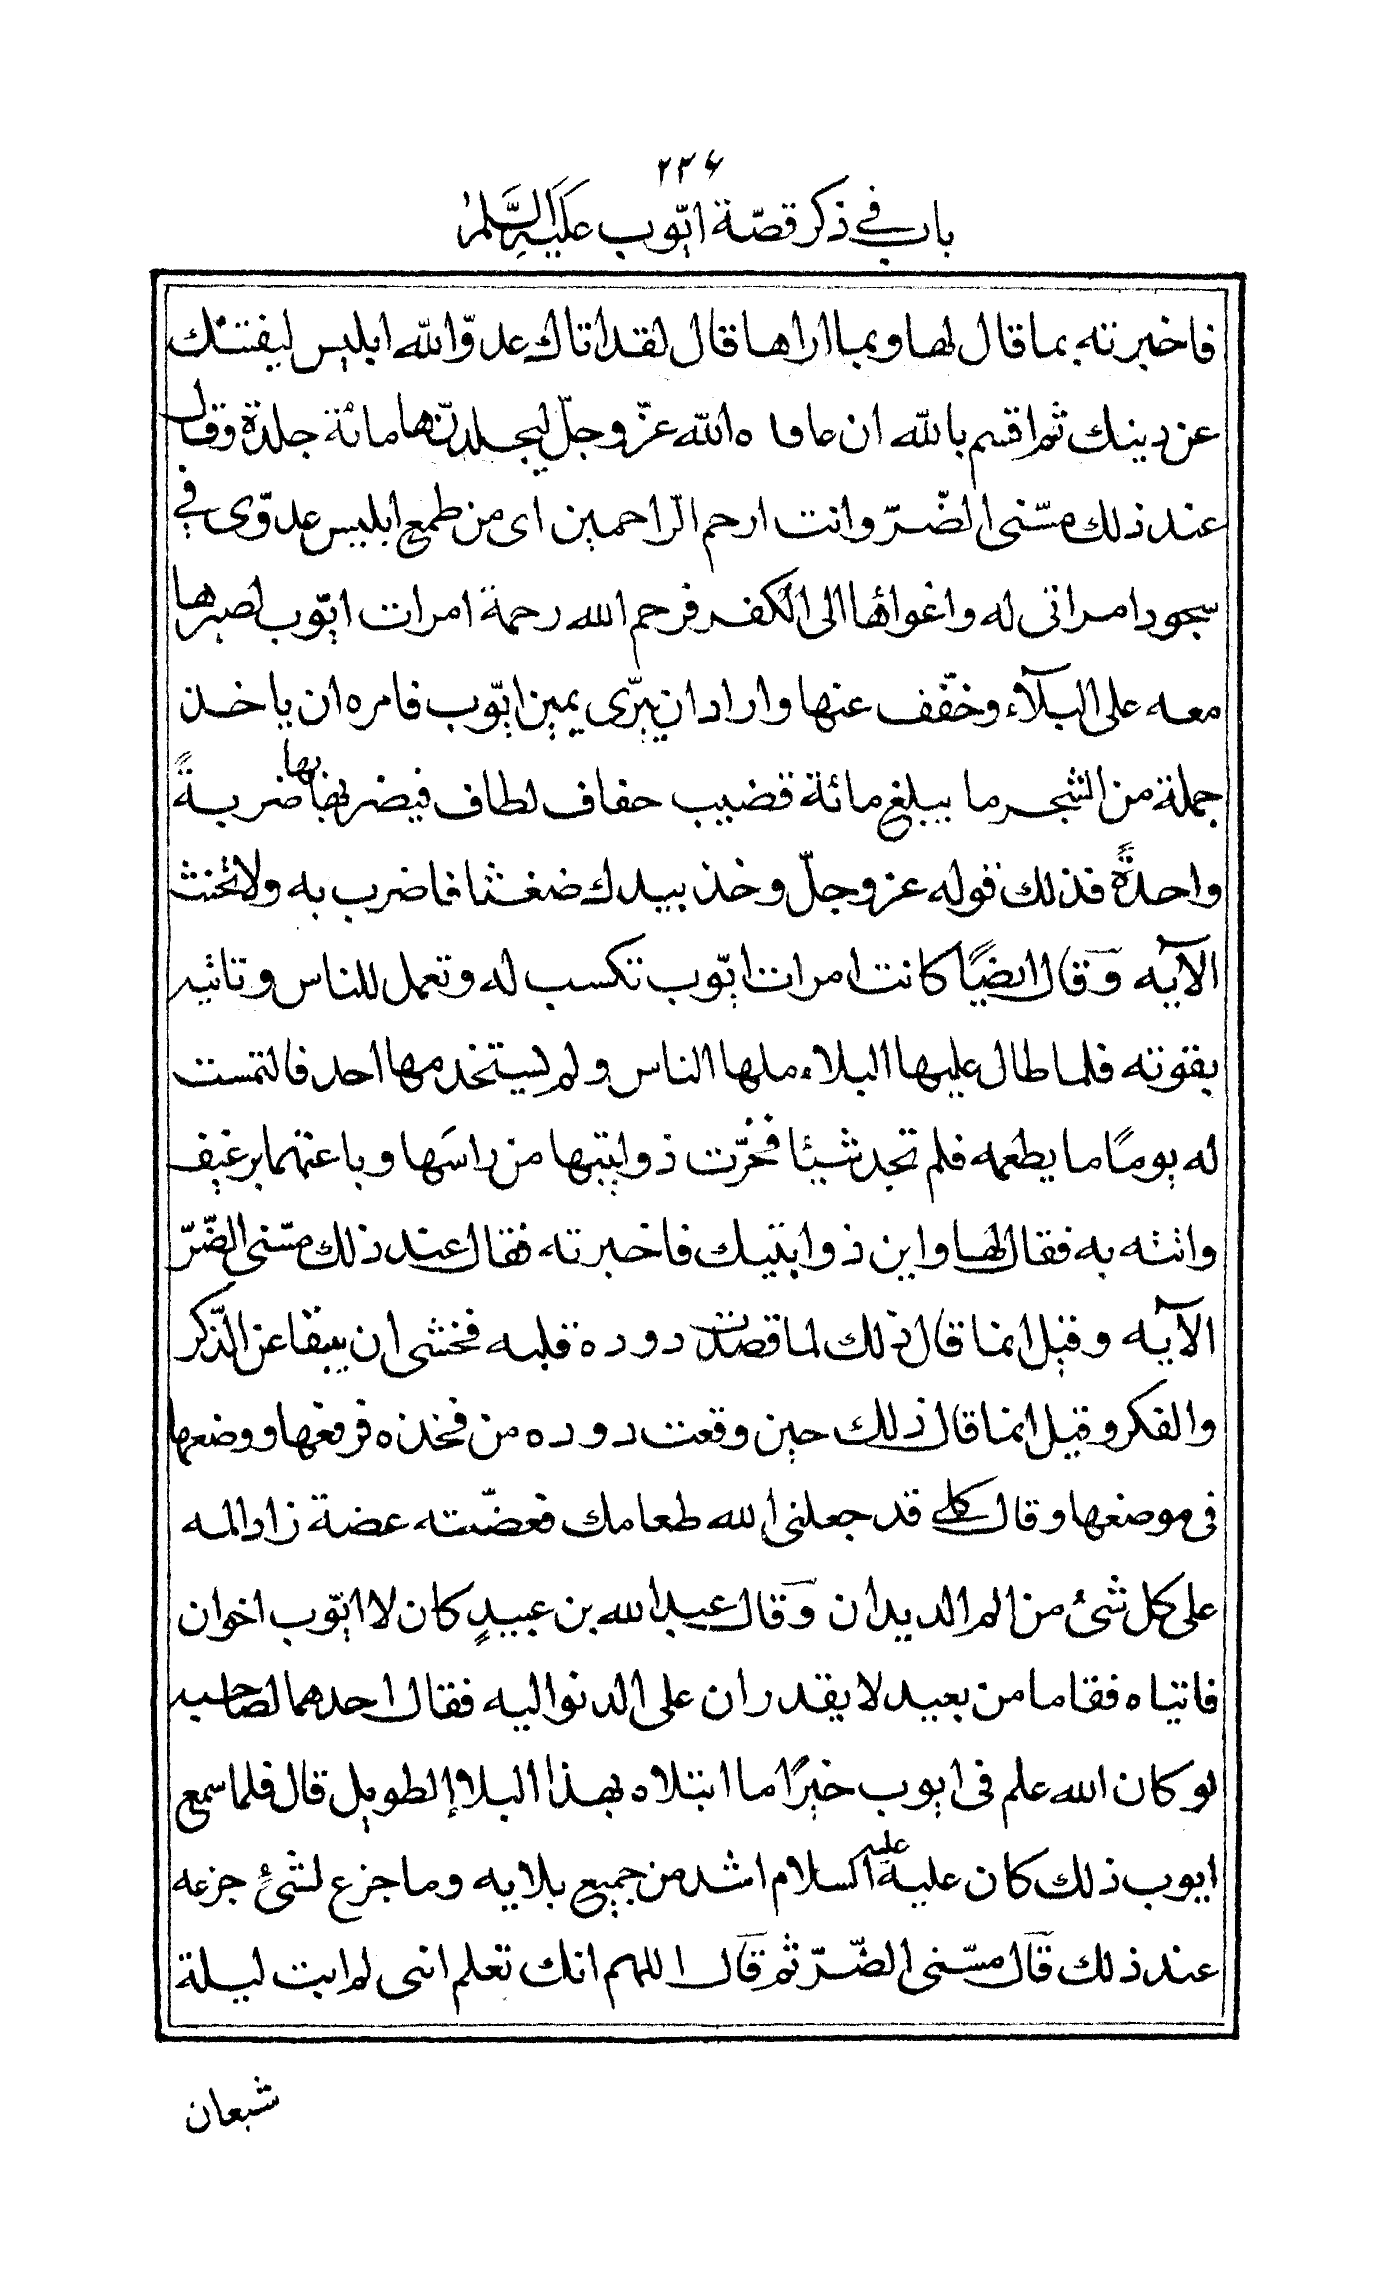 ٢٣٦
باب في ذكر قصّة ايّوب عليه السّلم
فاخبرته بما قال لها وبما اراها قال لقد اتاك عدوّ الله ابليس ليفتنك
عن دينك ثم اقسم بالله ان عافاه الله عزّ وجلّ ليجلدنّها مائة جلدة وقال
عند ذلك مسّنى الضّرّ وانت ارحم الرّاحمين اى من طمع ابليس عدوّى في
سجود امراتى له واغوائها الى الكفر فرحم الله رحمة امرات ايّوب لصبرها
معه على البلآء وخفّف عنها واراد ان يبرّى يمين ايّوب فامره ان ياخذ
جملة من الشجر ما يبلغ مائة قضيب خفاف لطاف فيضربها بها ضربةً
واحدةً فذلك قوله عز وجلّ وخذ بيدك ضغثا فاضرب به ولا تحنث
الآيه وقال ايضًا كانت امرات ايّوب تكسب له وتعمل للناس وتاتيه
بقوته فلما طال عليها البلاء ملها الناس ولم يستخدمها احد فالتمست
له يومًا ما يطعمه فلم تجد شيئا فخرّت ذوايتها من راسها وباعتهما برغيف
واتته به فقال لها واين ذوابتيك فاخبرته فقال عند ذلك مسّنى الضّرّ
الآيه وقيل انما قال ذلك لما قصدت دوده قلبه فخشى ان يبقا عن الذّكر
والفكر وقيل انما قال ذلك حين وقعت دوده من فخذه فرفعها ووضعها
فى موضعها وقال كلى قد جعلنى الله طعامك فعضّته عضة زاد المه
على كل شئ من الم الديدان وقال عبد الله بن عبيدٍ كان لاايّوب اخوان
فاتياه فقاما من بعيد لا يقدران على الدنو اليه فقال احدهما لصاحبه
لو كان الله علم فى ايوب خيرًا ما ابتلاه بهذا البلاء الطويل قال فلما سمع
ايوب ذلك كان عليه عليه السلام اشد من جميع بلايه وما جزع لشئٍ جزعه
عند ذلك قال مسّنى الضّرّ ثم قال اللهم انك تعلم اننى لم ابت ليلة
شبعان